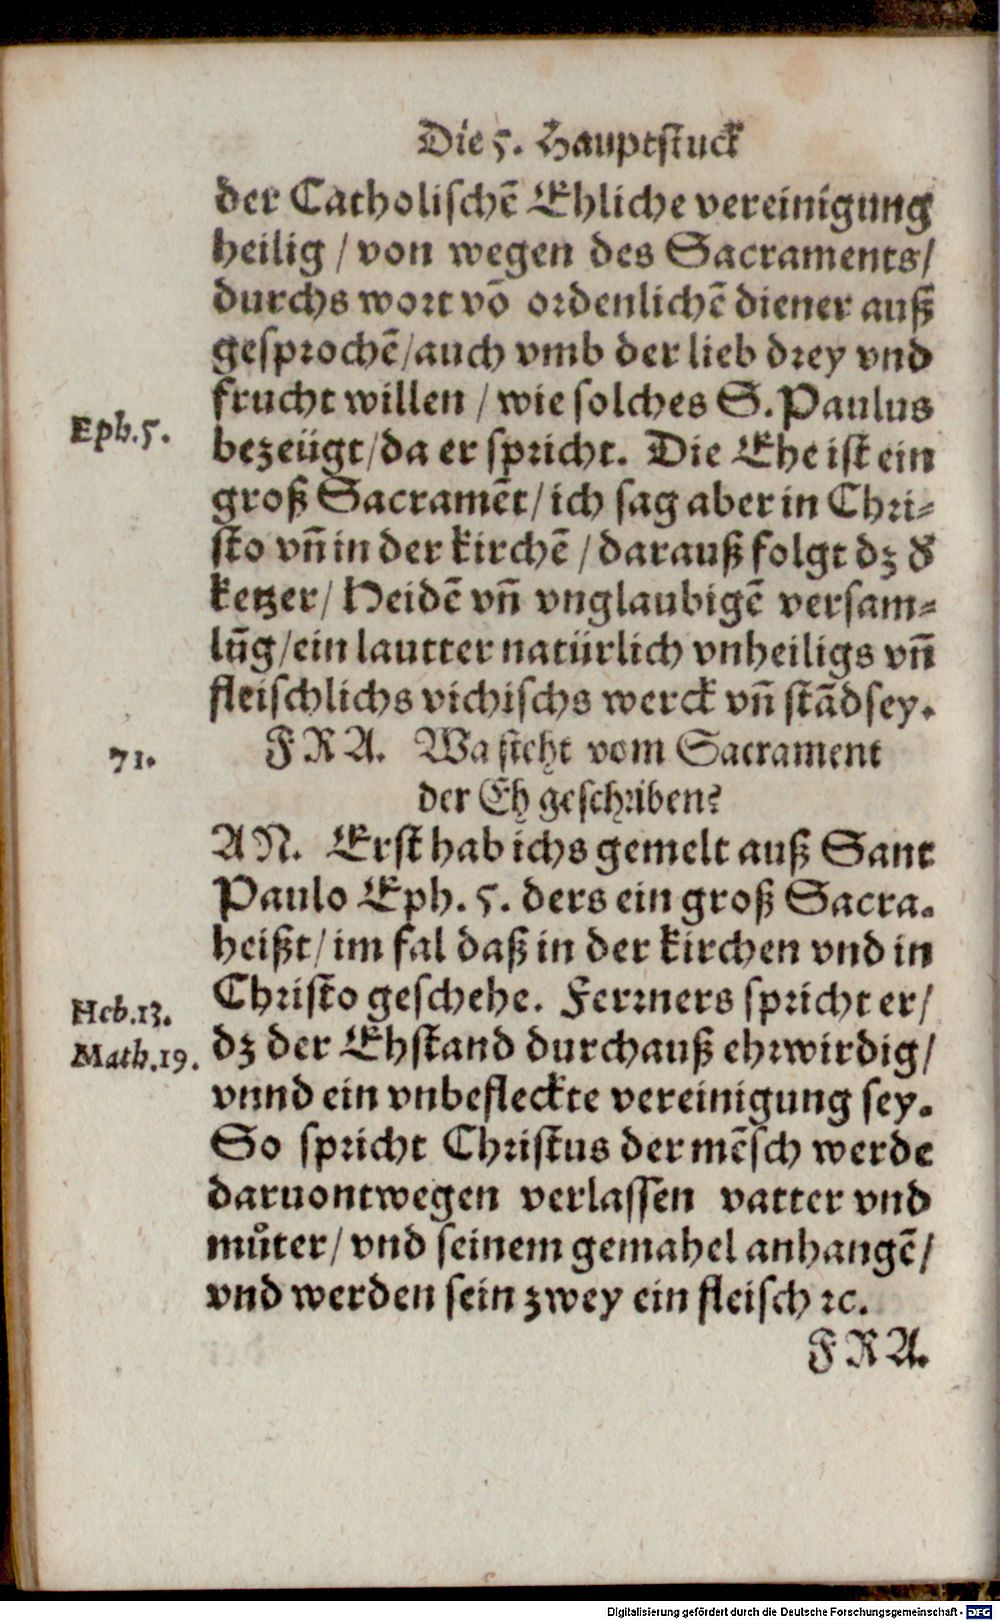 Die 5. Hauptstuck
der Catholischē Ehliche vereinigung
heilig / von wegen des Sacraments/
durchs wort vō ordenlichē diener auß
gesprochē/auch vmb der lieb drey vnd
frucht willen / wie solches S. Paulus
Eph.5.
bezeügt/da er spricht. Die Ehe ist ein
groß Sacramēt/ich sag aber in Chri-
sto vñ in der kirchē /darauß folgt dz d̕
ketzer/ Heidē vñ vnglaubigē versam-
lūg/ein lautter natürlich vnheiligs vñ
fleischlichs vichischs werck vñ stād sey.
71.
FRA. Wa steht vom Sacrament
der Eh geschriben?
AN. Erst hab ichs gemelt auß Sant
Paulo Eph. 5. ders ein groß Sacra.
heißt/im fal daß in der kirchen vnd in
Christo geschehe. Ferrners spricht er/
Heb.13.
Math.19.
dz der Ehstand durchauß ehrwirdig/
vnnd ein vnbefleckte vereinigung sey.
So spricht Christus der mēsch werde
daruontwegen verlassen vatter vnd
můter/vnd seinem gemahel anhangē/
vnd werden sein zwey ein fleisch ꝛc.
FRA.
Digitalisierung gefördert durch die Deutsche Forschungsgemeinschaft - DFG